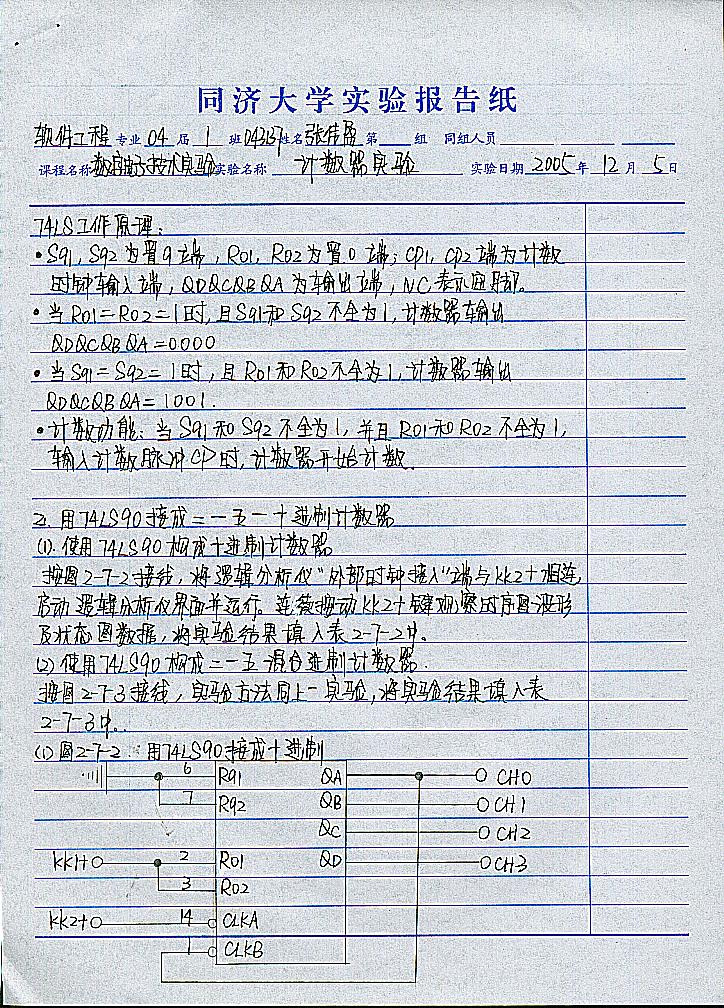 同济大学实验报告纸
软件工程 专业 04 届 1 班 043137 姓名 张伟盈 第 组 同组人员
课程名称 数字电子技术实验 实验名称 计数器实验 实验日期 2005 年 12 月 5 日
74LS工作原理:
• S91, S92 为置9端, R01, R02为置0 端; CP1, CP2 端为计数
时钟输入端, QDQCQBQA 为输出端, NC表示空脚。
• 当 R01=R02=1时, 且S91和 S92 不全为1, 计数器输出
QDQCQBQA=0000
• 当 S91=S92=1时, 且 R01和R02不全为1, 计数器输出
QDQCQBQA=1001.
• 计数功能: 当 S91和 S92 不全为1, 并且 R01和R02 不全为1,
输入计数脉冲CP时, 计数器开始计数.
2. 用74LS90接成二一五一十进制计数器
(1). 使用74LS90 构成十进制计数器
按图2-7-2接线, 将逻辑分析仪"外部时钟接入"端与KK2+相连,
启动逻辑分析仪界面并运行。连续按动KK2+键观察时序图波形
及状态图数据, 将实验结果填入表2-7-2中。
(2) 使用74LS90构成二一五混合进制计数器.
按图2-7-3接线, 实验方法同上一实验, 将实验结果填入表
2-7-3中.
(1) 图2-7-2 用74LS90接成十进制
6 R91 QA CH0
7 R92 QB CH1
QC CH2
KK1+ 2 R01 QD CH3
3 R02
KK2+ 14 CLKA
1 CLKB